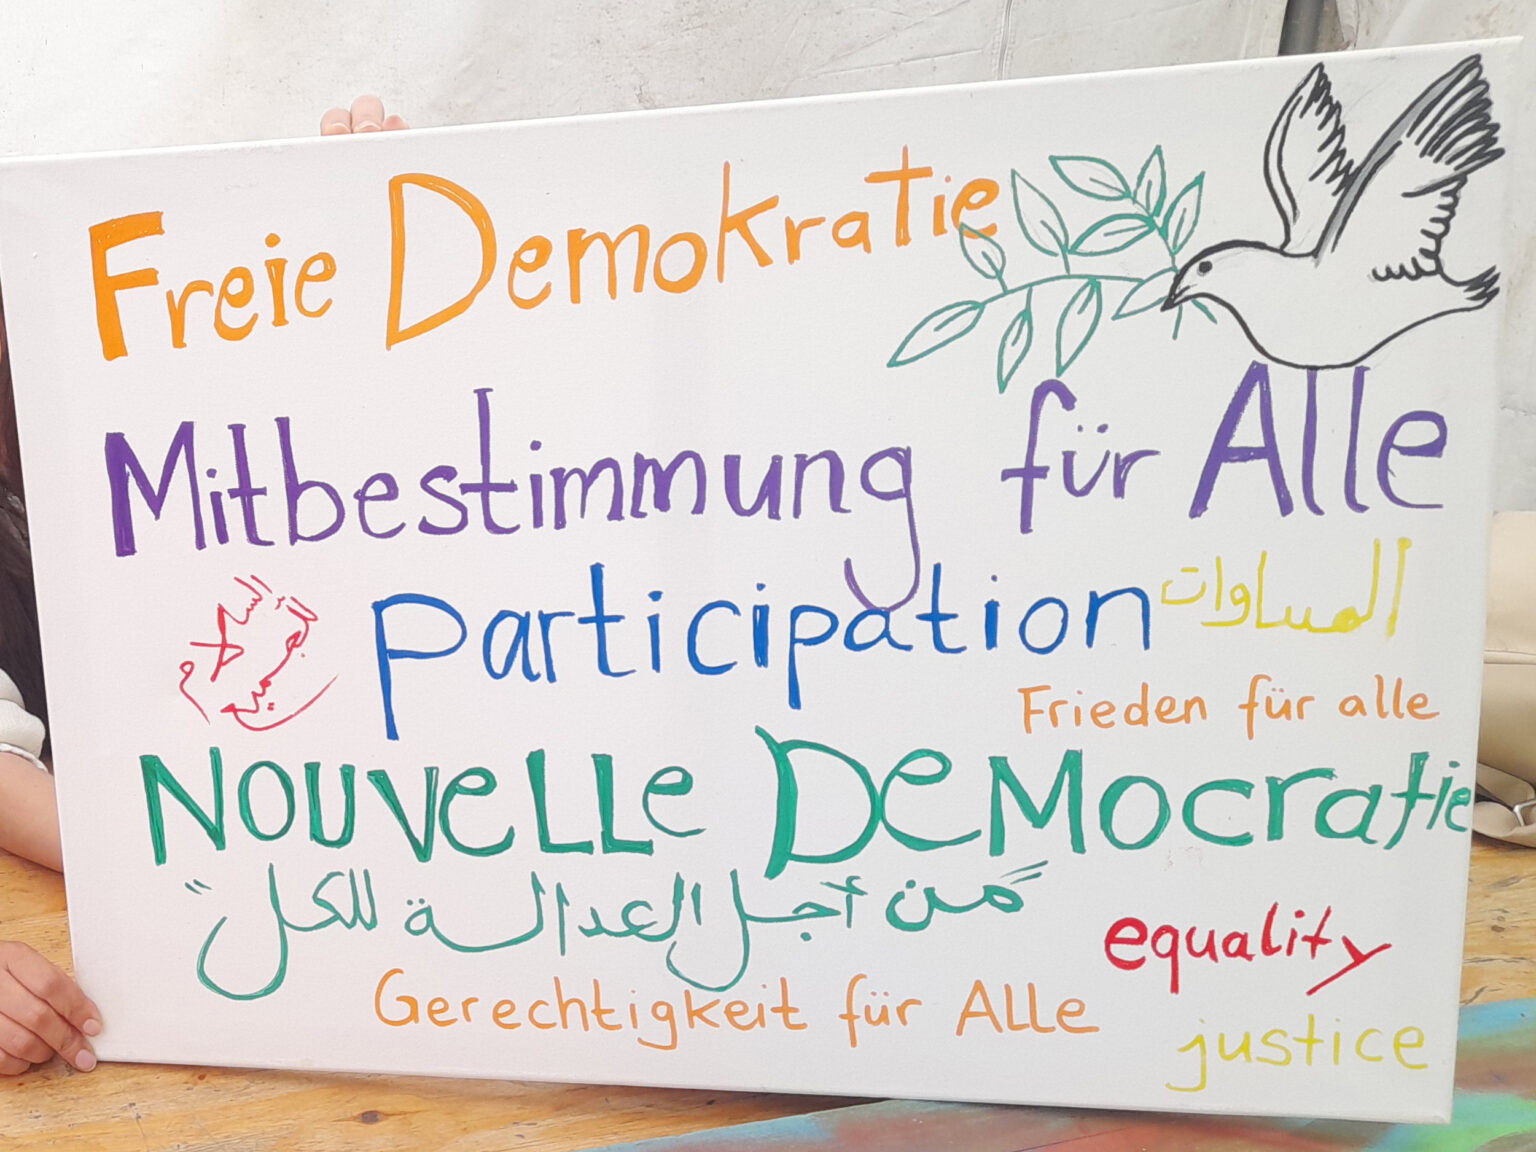 Freie Demokratie
Mitbestimmung für Alle
المساوات
participation
السلام
أجمعين
Frieden für alle
Nouvelle Democratie
"من أجل العدالة للكل"
equality
Gerechtigkeit für Alle
justice